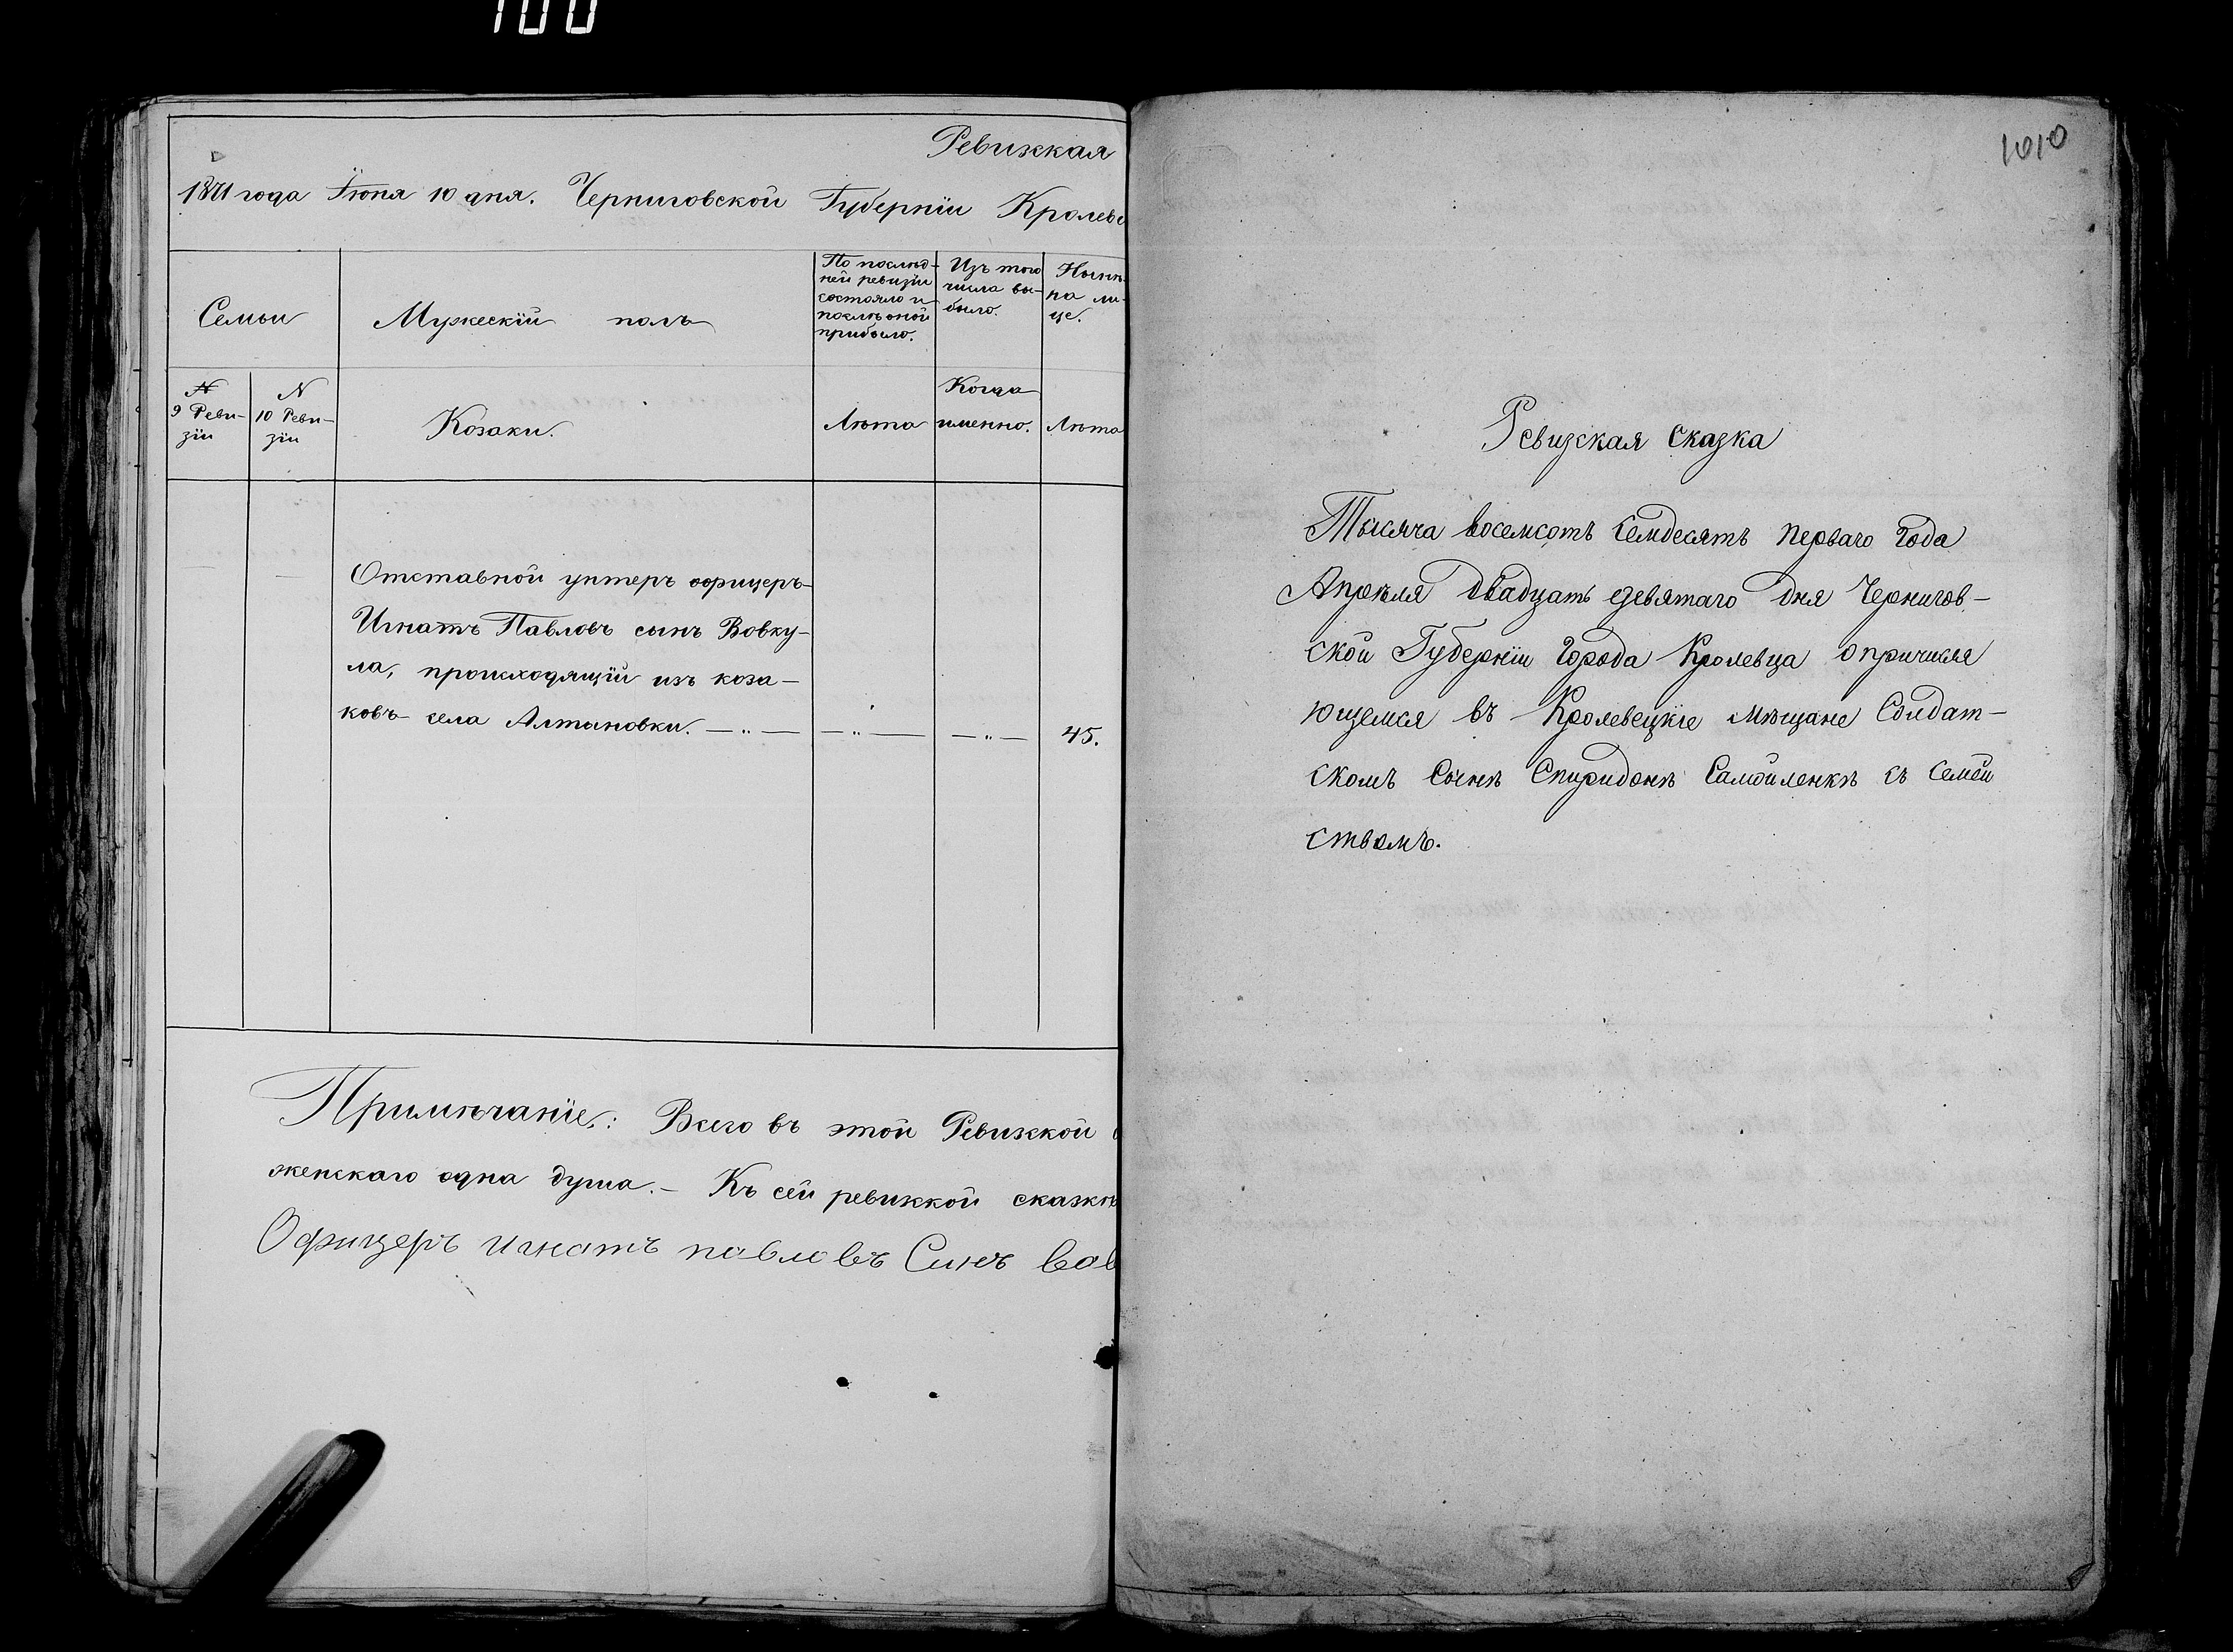 100
Ревизская
1871 года Іюня 10 дня. Черниговской Губерніи Кролеве
Семьи
Мужескій полъ
По послѣд-
ней ревизіи
состояло и
послѣ оной
прибыло.
Изъ того
числа вы-
было.
Нынѣ
на ли-
це.
N
9 Реви-
зіи
N
10 Реви-
зіи
Козаки.
Лѣта
Когда
именно.
Лѣта
Отставной унтеръ офицеръ
Игнатъ Павловъ сынъ Вовку-
ла, происходящій изъ коза-
ковъ села Алтыновки. — „ — — „ — — „ — 45.
Примѣчаніе: Всего въ этой Ревизской
женскаго одна душа. — Къ сей ревизкой сказкѣ
Офицеръ игнатъ павловъ Синъ Вов
1010
Ревизская Сказка
Тысяча восемсотъ семдесятъ перваго года
Апрѣля двадцать девятаго дня Чернигов-
ской Губерніи города Кролевца о причисля
ющемся въ Кролевецкіе Мѣщане Солдат-
скомъ Сынѣ Спиридонѣ Самойленкѣ съ Семей
ствомъ.